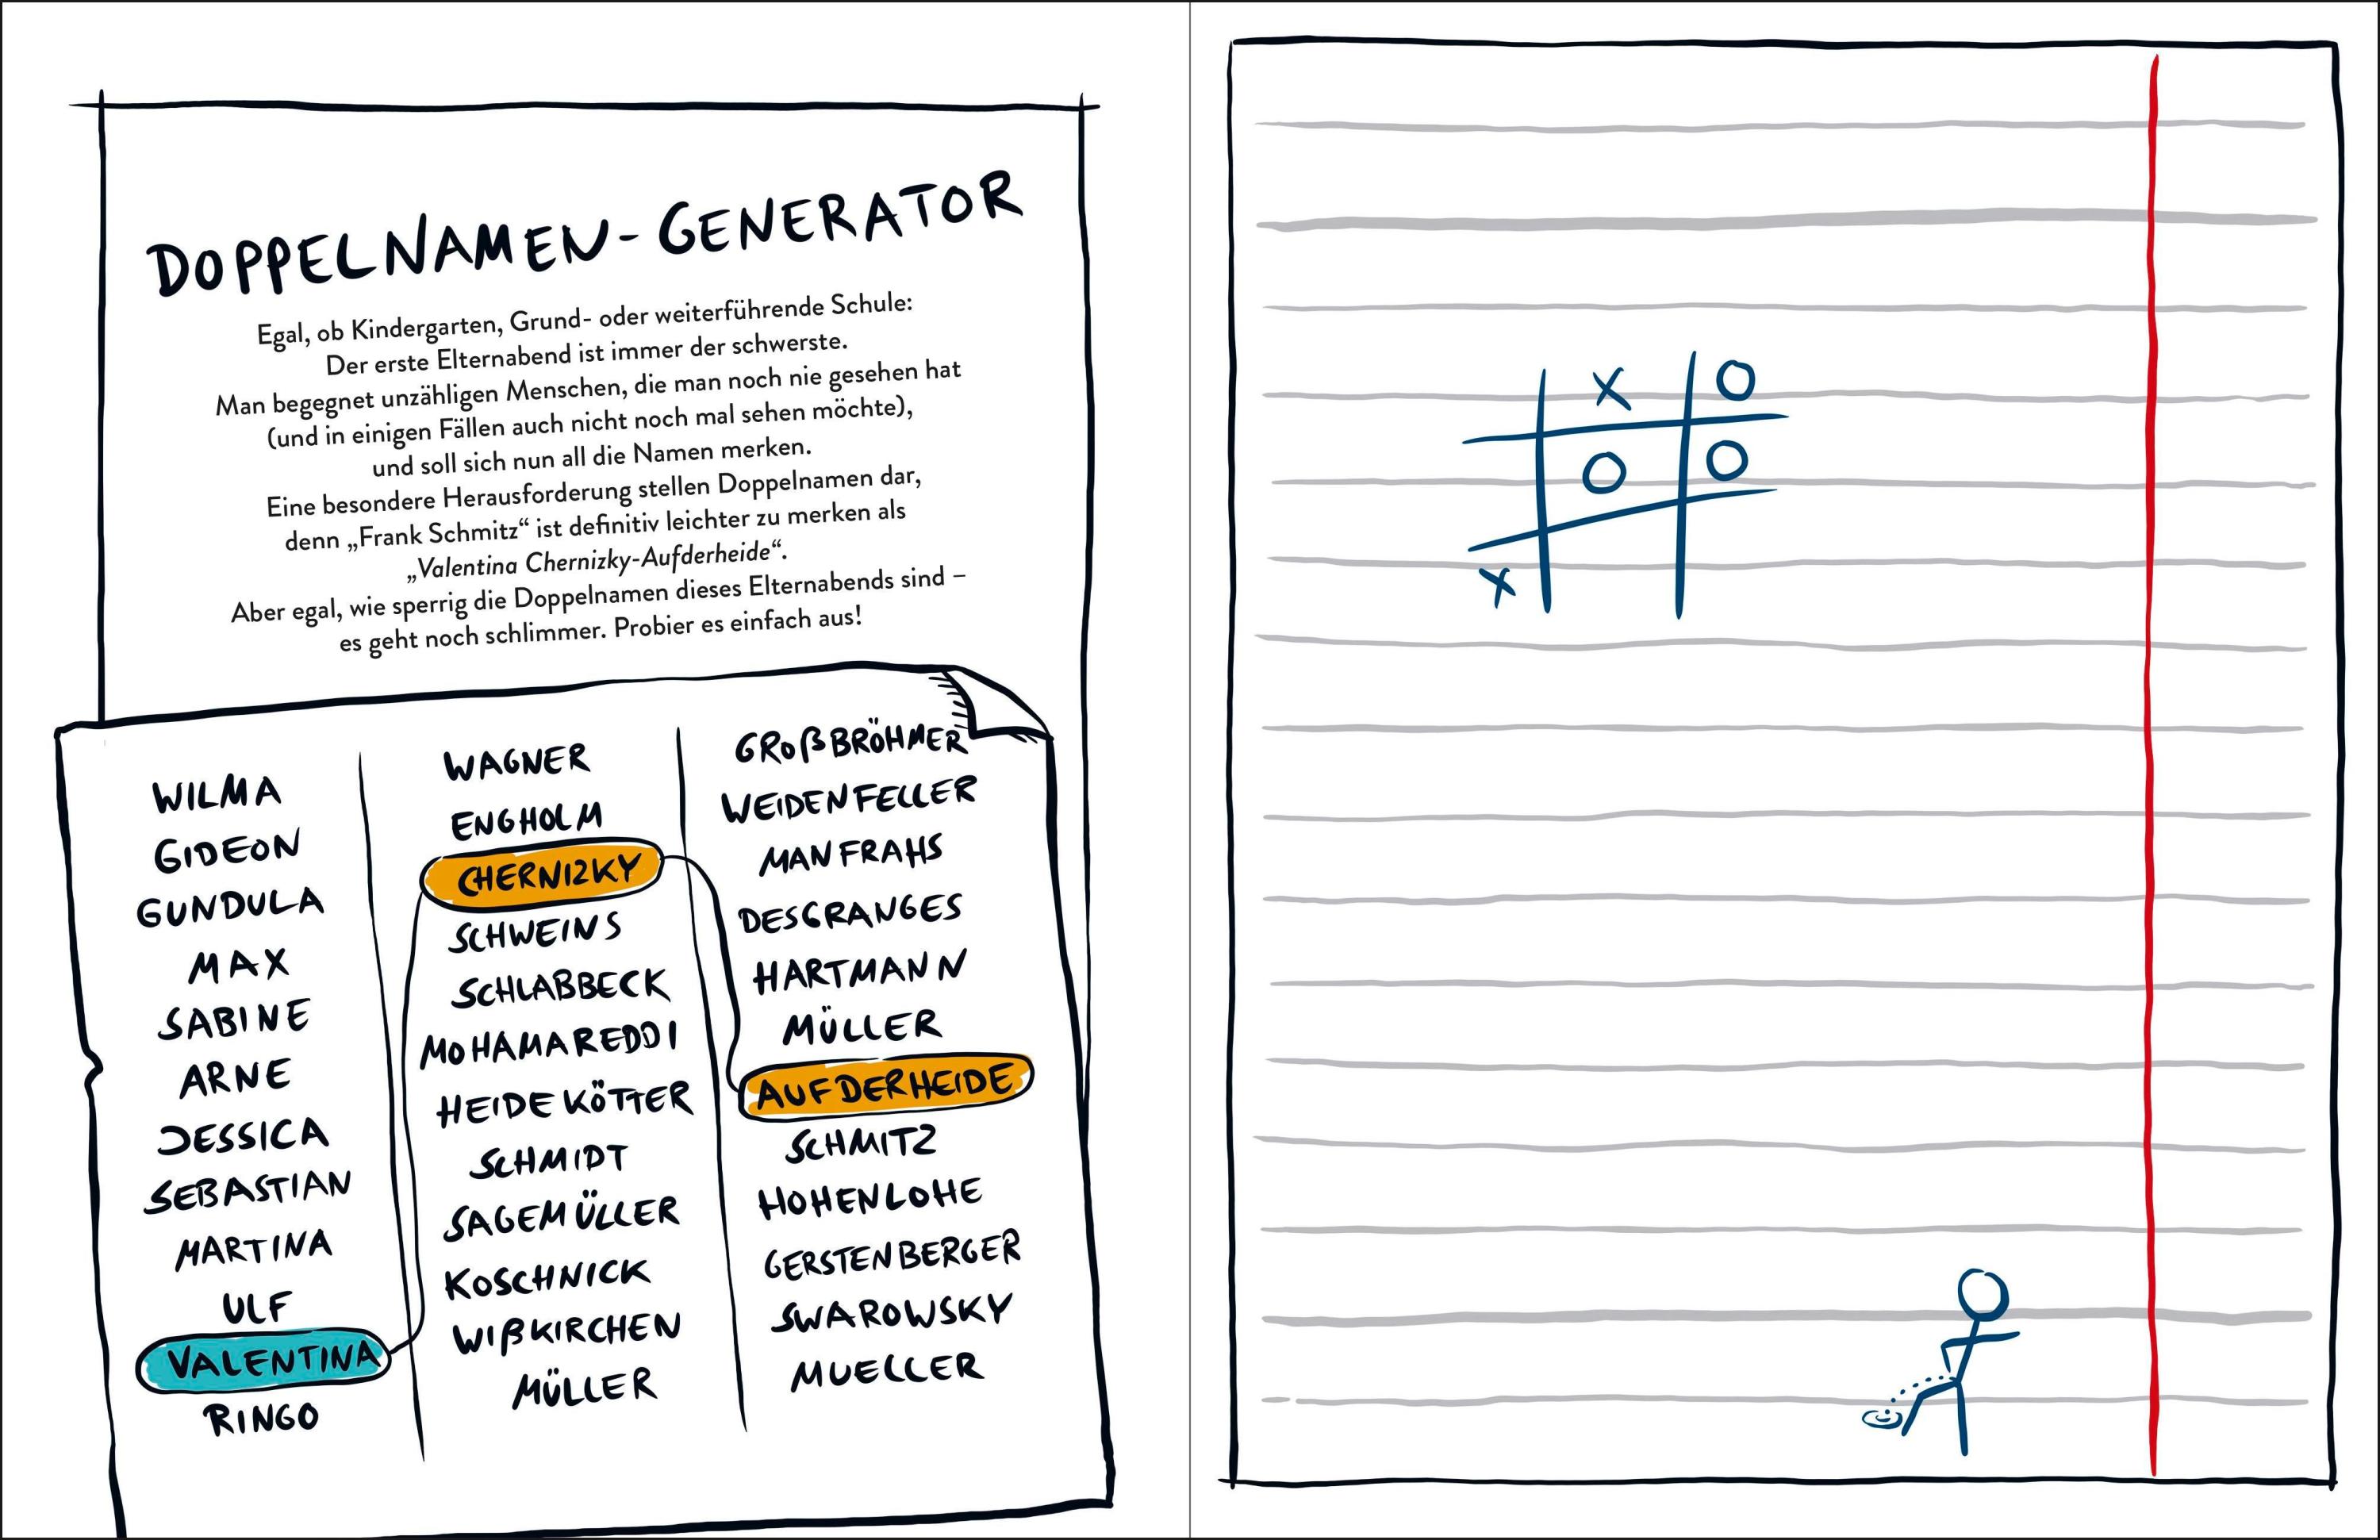 DOPPELNAMEN-GENERATOR
Egal, ob Kindergarten, Grund- oder weiterführende Schule:
Der erste Elternabend ist immer der schwerste.
Man begegnet unzähligen Menschen, die man noch nie gesehen hat
(und in einigen Fällen auch nicht noch mal sehen möchte),
und soll sich nun all die Namen merken.
Eine besondere Herausforderung stellen Doppelnamen dar,
denn „Frank Schmitz“ ist definitiv leichter zu merken als
„Valentina Chernizky-Aufderheide“.
Aber egal, wie sperrig die Doppelnamen dieses Elternabends sind –
es geht noch schlimmer. Probier es einfach aus!
WILMA
GIDEON
GUNDULA
MAX
SABINE
ARNE
JESSICA
SEBASTIAN
MARTINA
ULF
VALENTINA
RINGO
WAGNER
ENGHOLM
CHERNIZKY
SCHWEINS
SCHLABBECK
MOHAMAREDDI
HEIDEKÖTTER
SCHMIDT
SAGEMÜLLER
KOSCHNICK
WIßKIRCHEN
MÜLLER
GROßBRÖHMER
WEIDENFELLER
MANFRAHS
DESGRANGES
HARTMANN
MÜLLER
AUFDERHEIDE
SCHMITZ
HOHENLOHE
GERSTENBERGER
SWAROWSKY
MUELLER
X O
O O
X